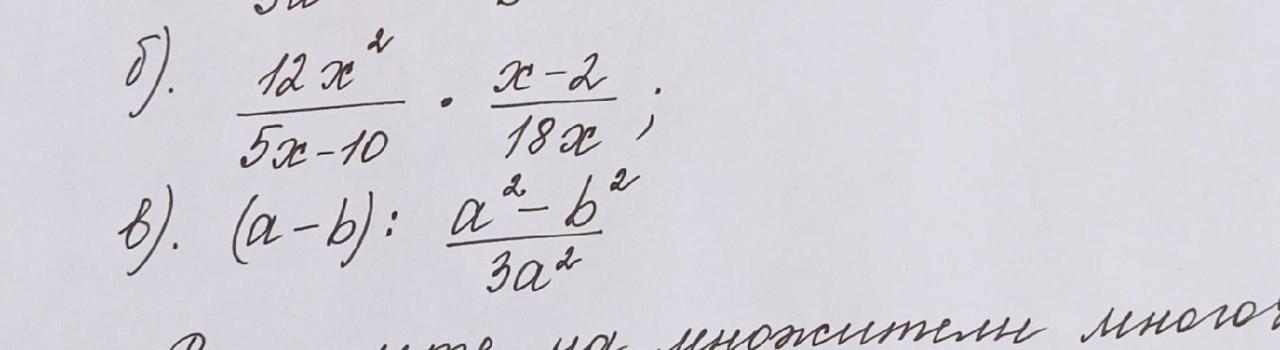 б). 12x²/(5x-10) · (x-2)/18x ;
в). (a-b): (a²-b²)/3a²
на множители